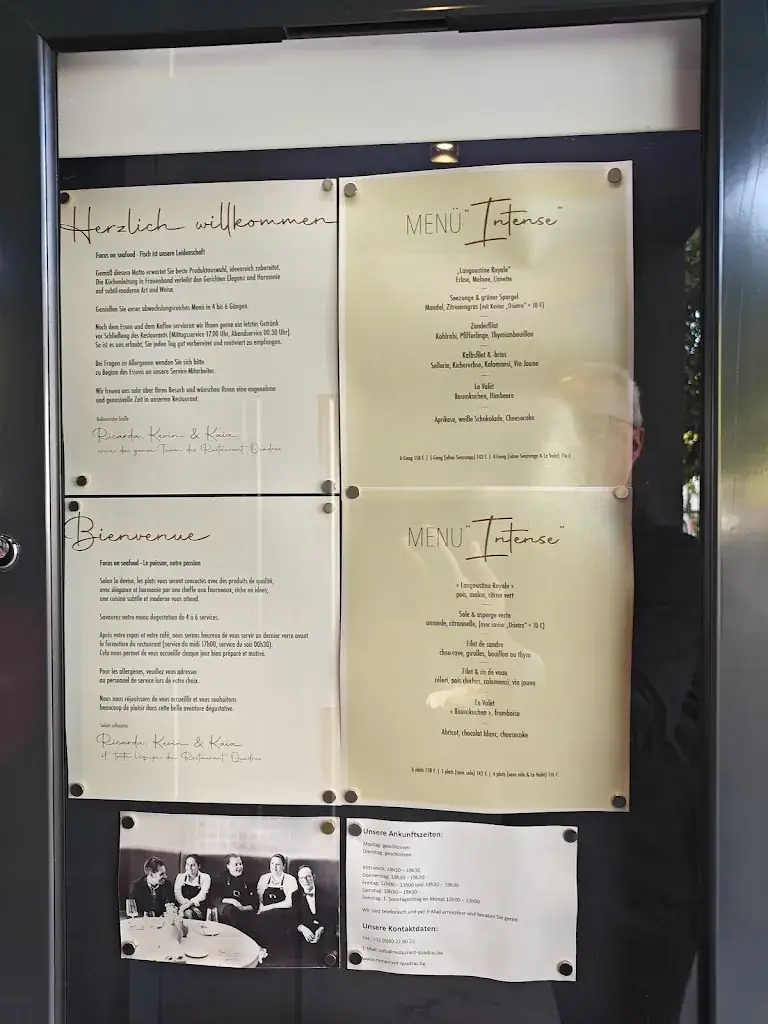 Herzlich willkommen
Focus on seafood - Fisch ist unsere Leidenschaft
Gemäß diesem Motto erwartet Sie beste Produktauswahl, ideenreich zubereitet.
Die Küchenleitung in Frauenhand verleiht den Gerichten Eleganz und Harmonie
auf subtil-moderne Art und Weise.
Genießen Sie unser abwechslungsreiches Menü in 4 bis 6 Gängen.
Nach dem Essen und dem Kaffee servieren wir Ihnen gerne ein letztes Getränk
vor Schließung des Restaurants (Mittagsservice 17.00 Uhr, Abendservice 00.30 Uhr).
So ist es uns erlaubt, Sie jeden Tag gut vorbereitet und motiviert zu empfangen.
Bei Fragen zu Allergenen wenden Sie sich bitte
zu Beginn des Essens an unsere Service-Mitarbeiter.
Wir freuen uns sehr über Ihren Besuch und wünschen Ihnen eine angenehme
und genussvolle Zeit in unserem Restaurant.
Kulinarische Grüße
Ricarda, Kevin & Kaia
sowie das ganze Team des Restaurant Quadras
MENÜ "Intense"
„Langoustine Royale"
Erbse, Melone, Limette
Seezunge & grüner Spargel
Mandel, Zitronengras (mit Kaviar „Osietra" + 10 €)
Zanderfilet
Kohlrabi, Pfifferlinge, Thymianbouillon
Kalbsfilet & -bries
Sellerie, Kichererbse, Kalamansi, Vin Jaune
Le Valèt
Baumkuchen, Himbeere
Aprikose, weiße Schokolade, Cheesecake
6-Gang 158 € | 5-Gang (ohne Seezunge) 142 € | 4-Gang (ohne Seezunge & Le Valèt) 116 €
Bienvenue
Focus on seafood - Le poisson, notre passion
Selon la devise, les plats vous seront concoctés avec des produits de qualité,
avec élégance et harmonie par une cheffe aux fourneaux, riche en idées;
une cuisine subtile et moderne vous attend.
Savourez notre menu dégustation de 4 à 6 services.
Après votre repas et votre café, nous serons heureux de vous servir un dernier verre avant
la fermeture du restaurant (service du midi 17h00, service du soir 00h30).
Cela nous permet de vous accueillir chaque jour bien préparé et motivé.
Pour les allergènes, veuillez vous adresser
au personnel de service lors de votre choix.
Nous nous réjouissons de vous accueillir et vous souhaitons
beaucoup de plaisir dans cette belle aventure dégustative.
Saluts culinaires
Ricarda, Kevin & Kaia
et toute l'équipe du Restaurant Quadras
MENÜ "Intense"
« Langoustine Royale »
pois, melon, citron vert
Sole & asperge verte
amande, citronnelle, (avec caviar „Osietra" + 10 €)
Filet de sandre
chou-rave, girolles, bouillon au thym
Filet & ris de veau
céleri, pois chiches, calamansi, vin jaune
Le Valèt
« Baumkuchen », framboise
Abricot, chocolat blanc, cheesecake
6 plats 158 € | 5 plats (sans sole) 142 € | 4 plats (sans sole & Le Valèt) 116 €
Unsere Ankunftszeiten:
Montag: geschlossen
Dienstag: geschlossen
Mittwoch: 18h30 – 19h30
Donnerstag: 18h30 – 19h30
Freitag: 12h00 – 13h00 und 18h30 – 19h30
Samstag: 18h30 – 19h30
Sonntag: 1. Sonntagmittag im Monat 12h00 – 13h00
Wir sind telefonisch und per E-Mail erreichbar und beraten Sie gerne
Unsere Kontaktdaten:
Tel.: +32 (0)80 22 80 22
E-Mail: info@restaurant-quadras.be
www.restaurant-quadras.be